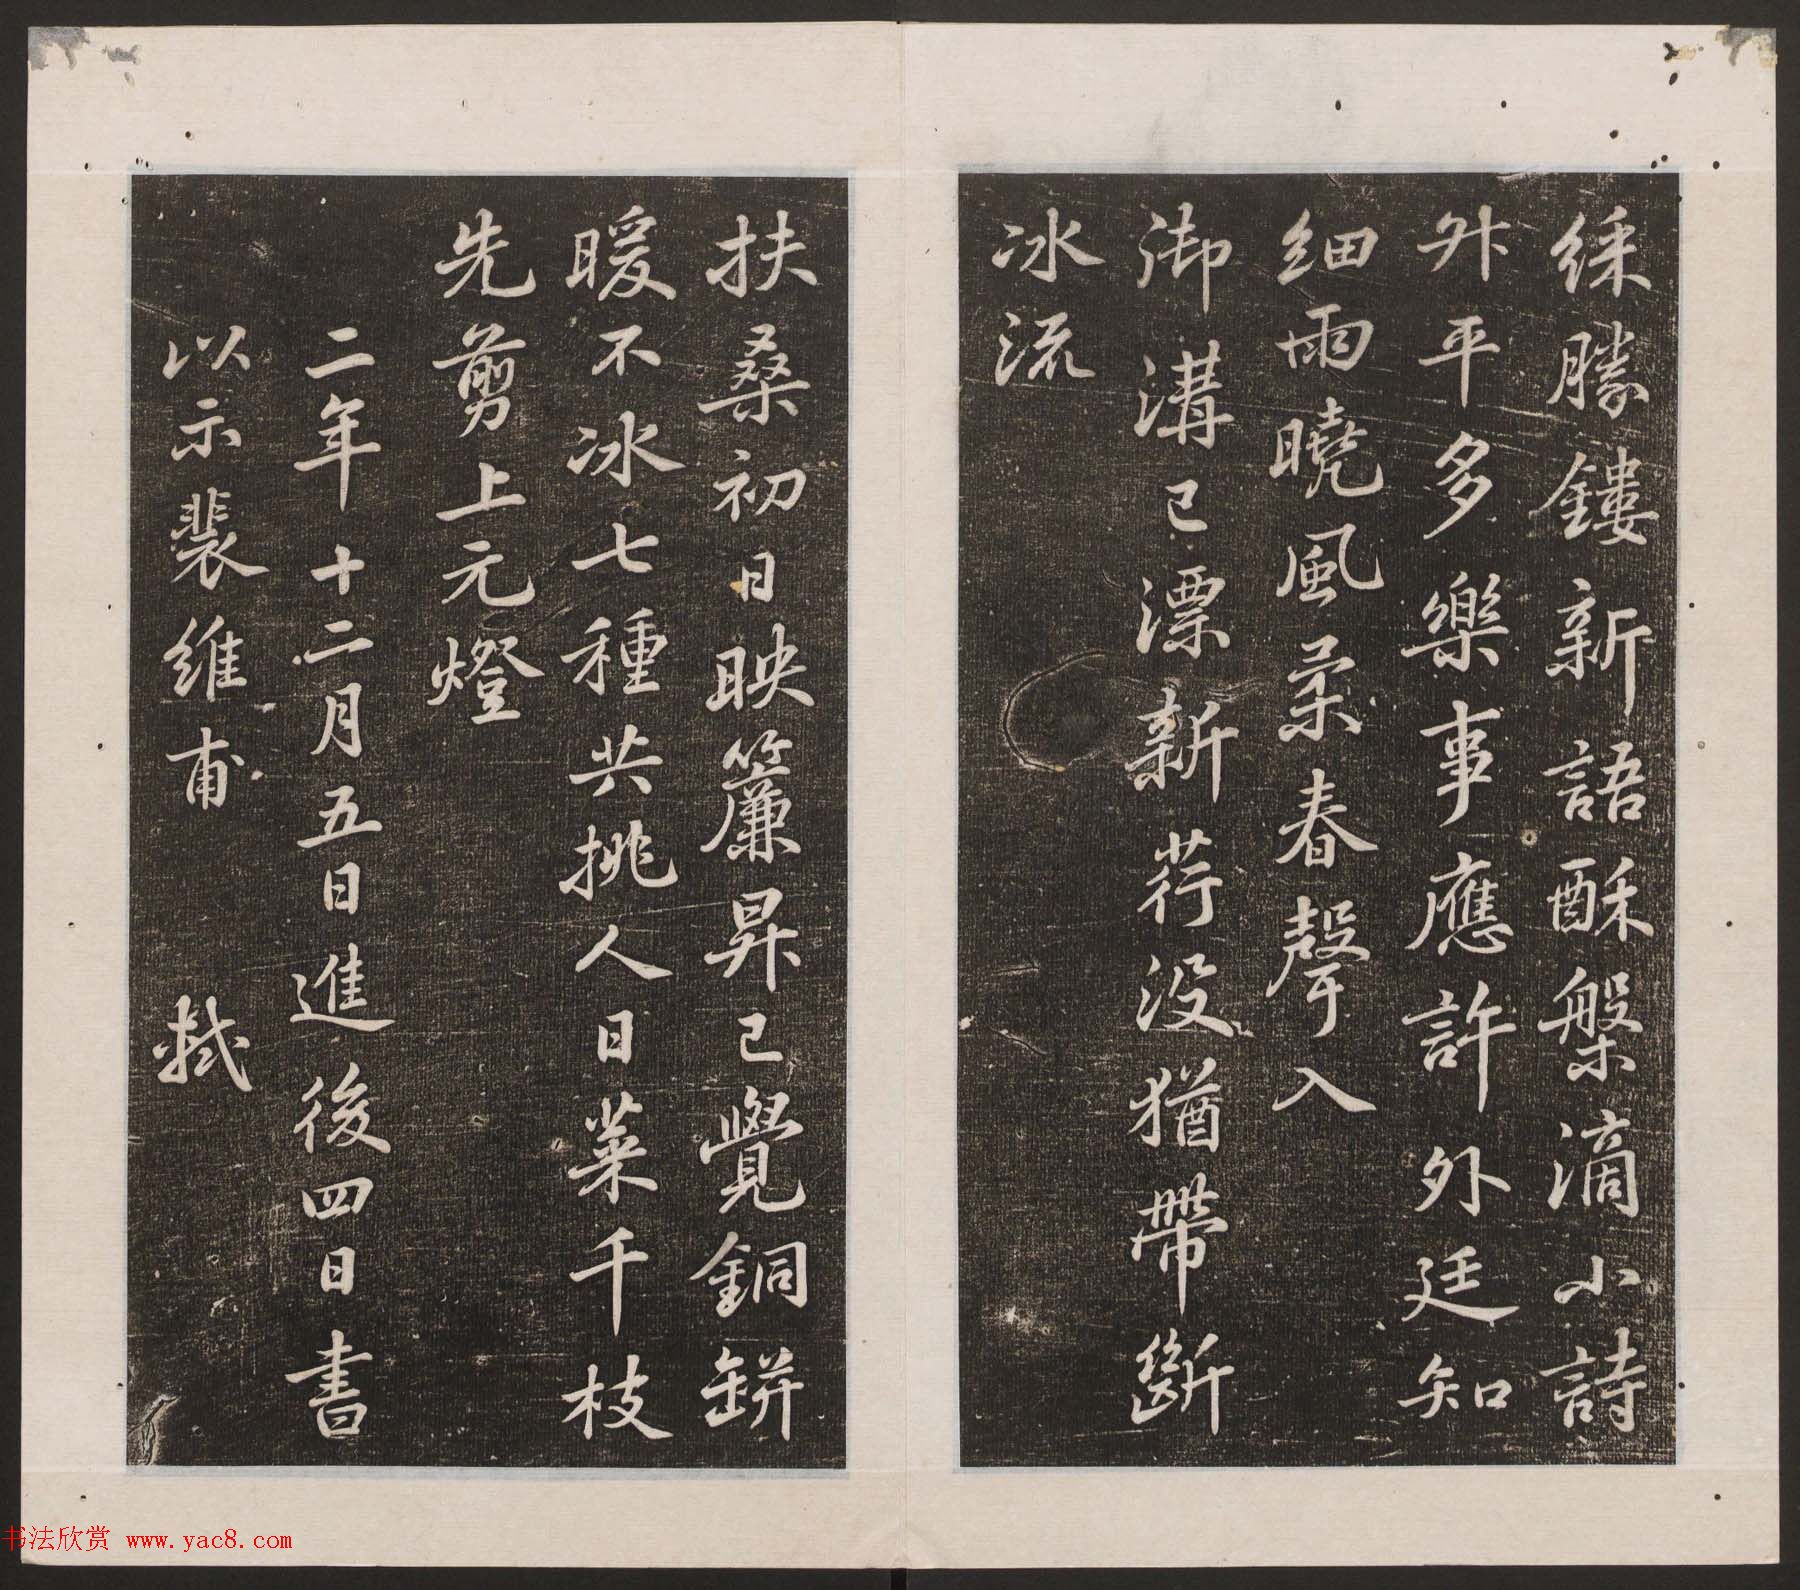 綵勝鏤新語酥槃滴小詩
外平多樂事應許外廷知
細雨曉風柔春聲入
御溝已漂新荇没猶帶斷
冰流
扶桑初日映簾昇已覺銅缾
暖不冰七種共挑人日菜千枝
先剪上元燈
二年十二月五日進後四日書
以示裴維甫　軾
书法欣赏 www.yac8.com